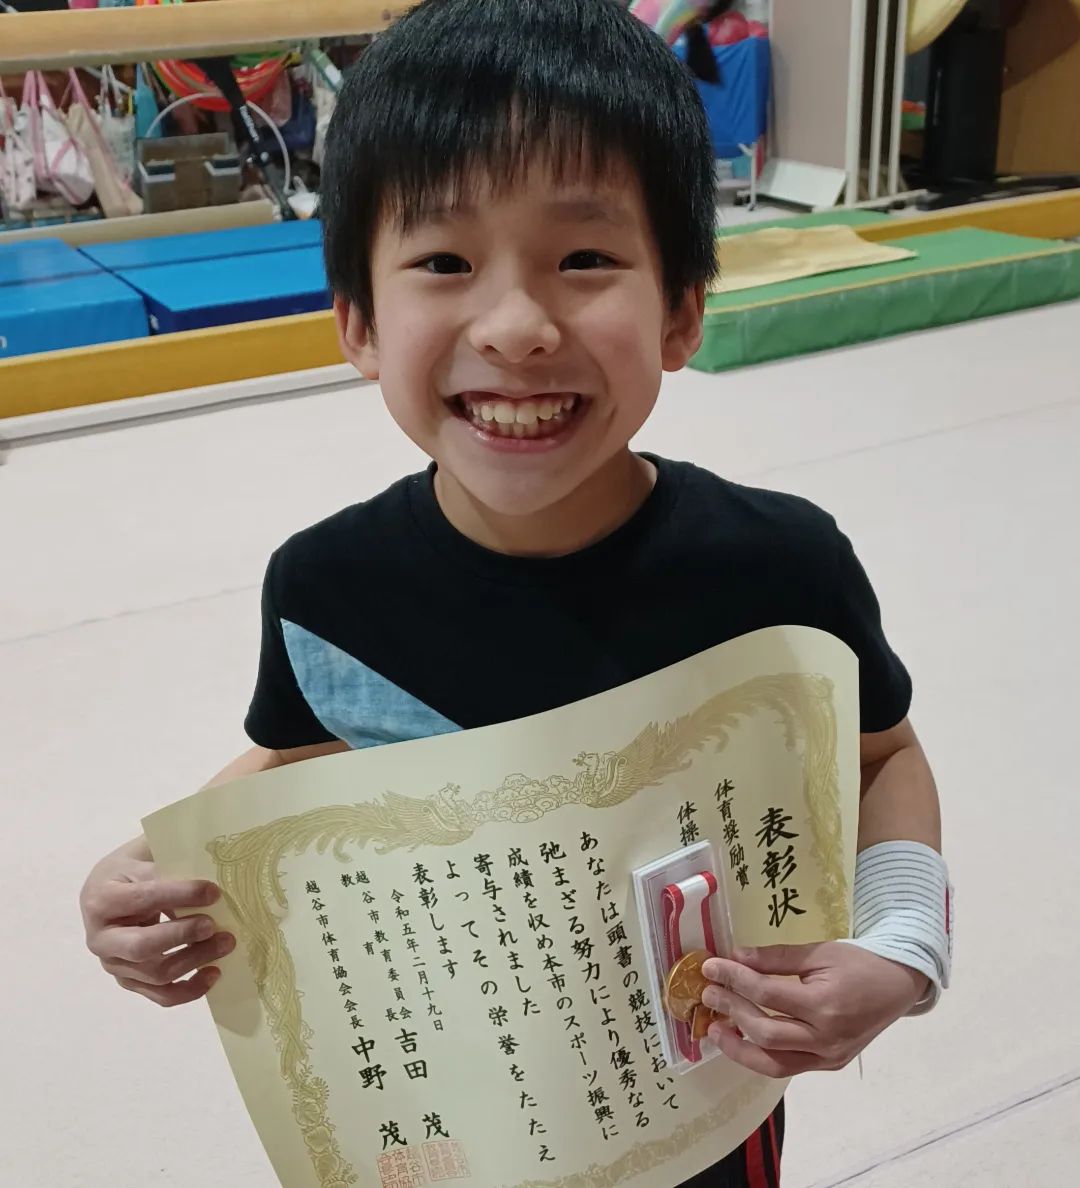 表彰状
体育奨励賞
体操
あなたは頭書の競技において
弛まざる努力により優秀なる
成績を収め本市のスポーツ振興に
寄与されました
よってその栄誉をたたえ
表彰します
令和五年二月十九日
越谷市教育委員会
教育長 吉田 茂
越谷市体育協会会長 中野 茂